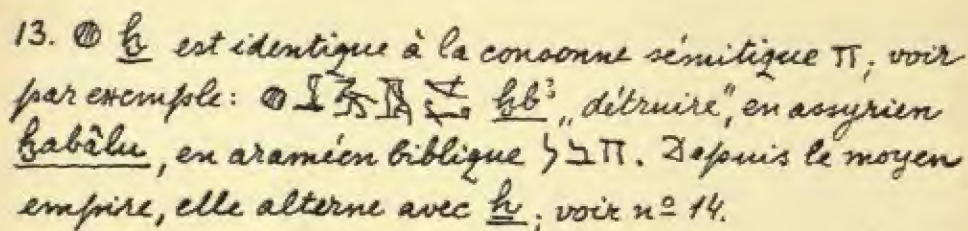 13. 𓐍 ḫ est identique à la consonne sémitique ח; voir
par exemple: 𓐍 ḫbꜣ „détruire”, en assyrien
ḫabâlu, en araméen biblique חבל. Depuis le moyen
empire, elle alterne avec ẖ; voir nº 14.